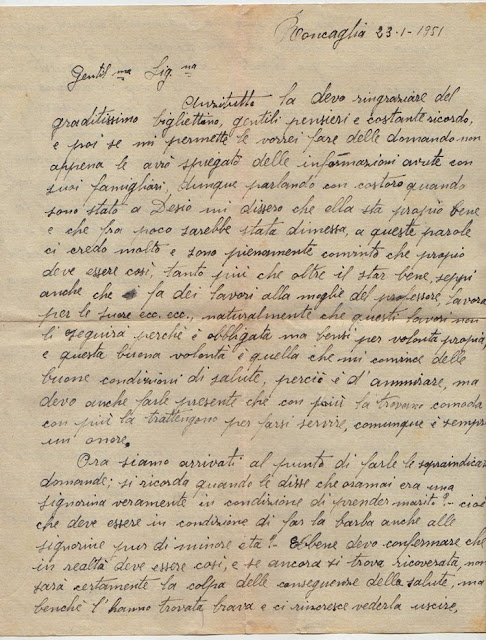 Roncaglia 23-1-1951
Gentil.ma Sig.na
Anzitutto la devo ringraziare del
graditissimo bigliettino, gentili pensieri e costante ricordo,
e poi se mi permette le vorrei fare delle domande non
appena le avrò spiegato delle informazioni avute con
suoi famigliari, dunque parlando con costoro quando
sono stato a Desio mi dissero che ella sta propio bene
e che fra poco sarebbe stata dimessa, a queste parole
ci credo molto e sono pienamente convinto che propio
deve essere così, tanto più che oltre il star bene, seppi
anche che fa dei lavori alla moglie del professore, lavora
per le suore ecc. ecc., naturalmente che questi lavori non
li seguirà perchè è obbligata ma bensì per volontà propia,
e questa buona volontà è quella che mi convince delle
buone condizioni di salute, perciò è d'ammirare, ma
devo anche farle presente che con più la trovano comoda
con più la trattengono per farsi servire, comunque è sempre
un onore.
Ora siamo arrivati al punto di farle le sopraindicate
domande; si ricorda quando le disse che oramai era una
signorina veramente in condizione di prender marito?- cioè
che deve essere in condizione di far la barba anche alle
signorine pur di minore età?- Ebbene devo confermare che
in realtà deve essere così, e se ancora si trova ricoverata, non
sarà certamente la colpa delle conseguenze della salute, ma
benchè l'hanno trovata brava e ci rincresce vederla uscire,